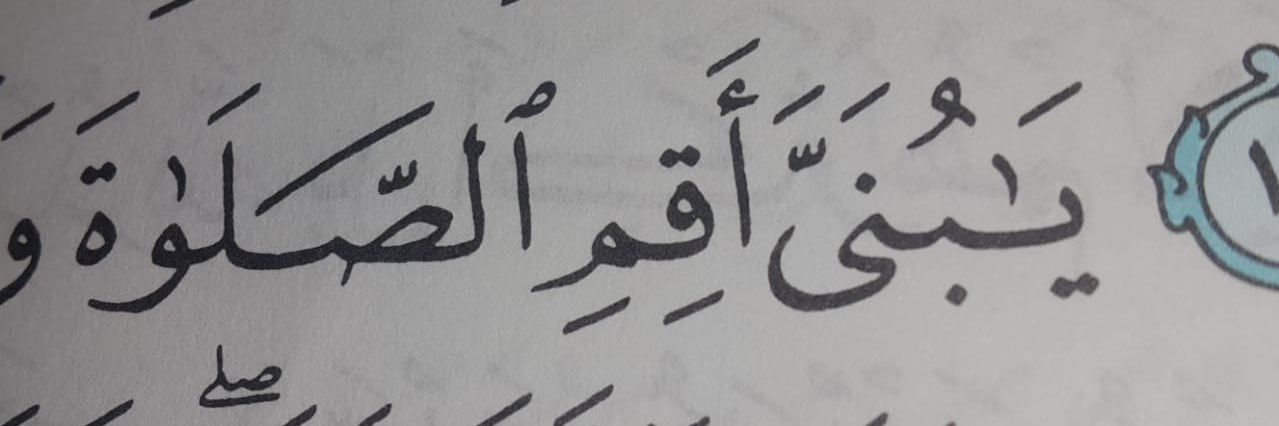 يَـٰبُنَىَّ أَقِمِ ٱلصَّلَوٰةَ وَ